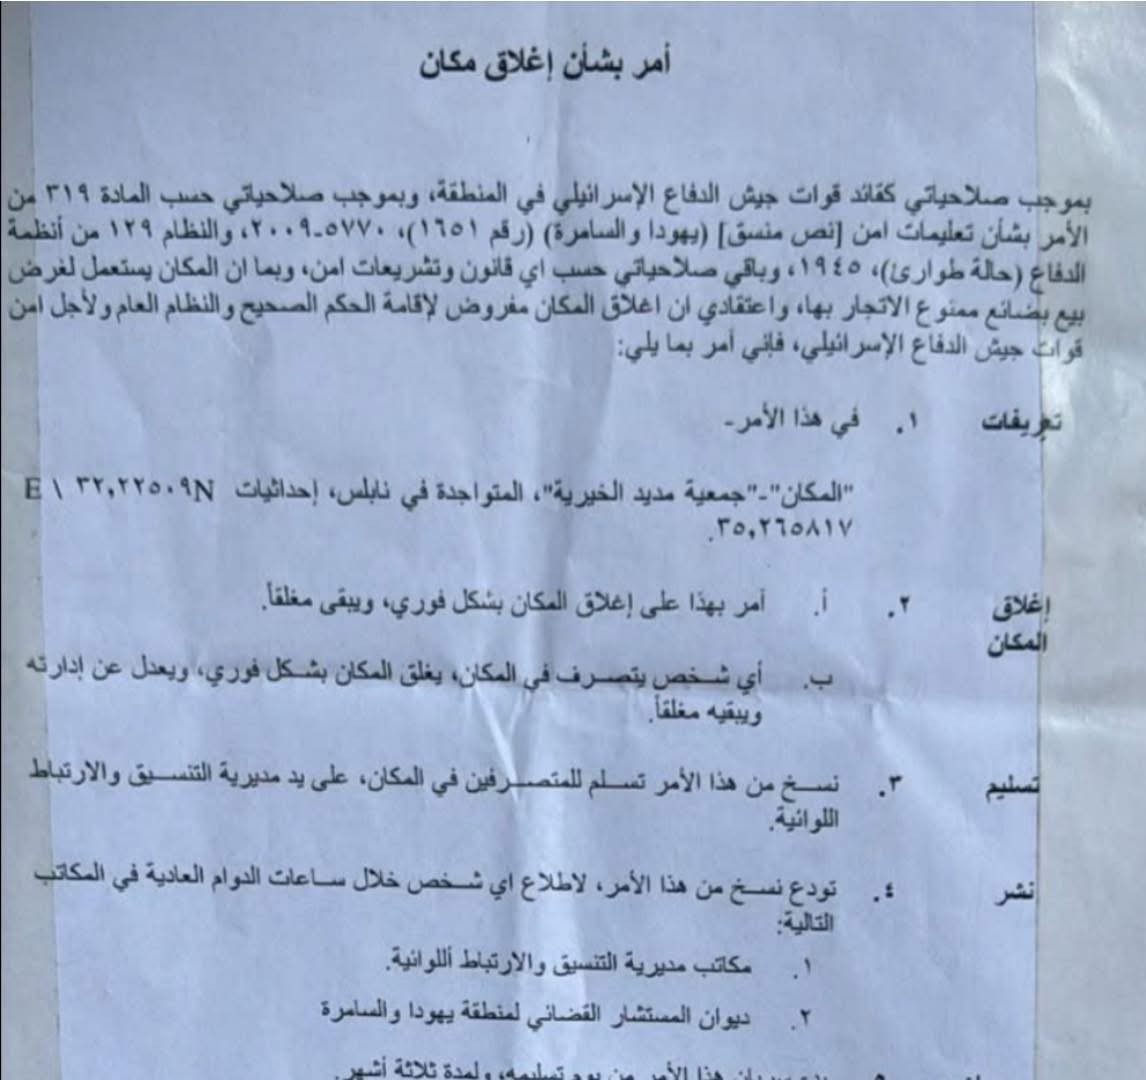 أمر بشأن إغلاق مكان
بموجب صلاحياتي كقائد قوات جيش الدفاع الإسرائيلي في المنطقة، وبموجب صلاحياتي حسب المادة ٣١٩ من
الأمر بشأن تعليمات امن [نص منسق] (يهودا والسامرة) (رقم ١٦٥١)، ٥٧٧٠-٢٠٠٩، والنظام ١٢٩ من أنظمة
الدفاع (حالة طوارئ)، ١٩٤٥، وباقي صلاحياتي حسب اي قانون وتشريعات امن، وبما ان المكان يستعمل لغرض
بيع بضائع ممنوع الاتجار بها، واعتقادي ان اغلاق المكان مفروض لإقامة الحكم الصحيح والنظام العام ولأجل امن
قوات جيش الدفاع الإسرائيلي، فإني أمر بما يلي:
تعريفات ١. في هذا الأمر-
"المكان"-"جمعية مديد الخيرية"، المتواجدة في نابلس، إحداثيات ٣٢,٢٢٥٠٩N \ E
٣٥,٢٦٥٨١٧.
إغلاق ٢. أ. أمر بهذا على إغلاق المكان بشكل فوري، ويبقى مغلقاً.
المكان
ب. أي شخص يتصرف في المكان، يغلق المكان بشكل فوري، ويعدل عن إدارته
ويبقيه مغلقاً.
تسليم ٣. نسخ من هذا الأمر تسلم للمتصرفين في المكان، على يد مديرية التنسيق والارتباط
اللوائية.
نشر ٤. تودع نسخ من هذا الأمر، لاطلاع اي شخص خلال ساعات الدوام العادية في المكاتب
التالية:
١. مكاتب مديرية التنسيق والارتباط أللوائية.
٢. ديوان المستشار القضائي لمنطقة يهودا والسامرة
سريان هذا الأمر من يوم تسليمه، ولمدة ثلاثة أشهر.